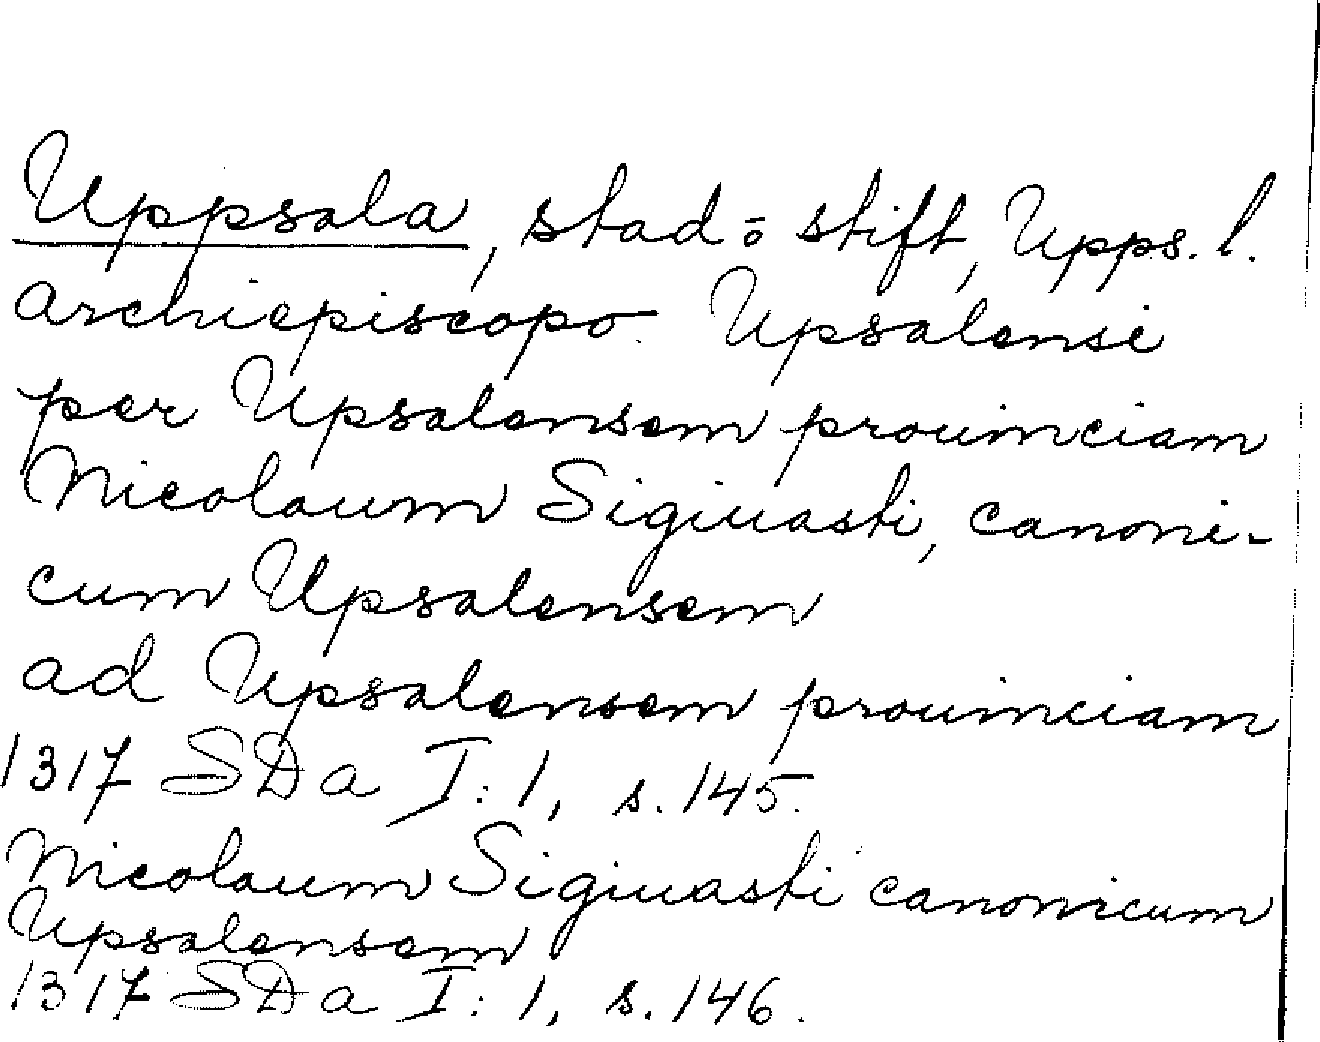 Uppsala, stad o stift, Upps. l.
archiepiscopo Upsalensi
per Upsalensem prouinciam
Nicolaum Sigiuasti, canoni-
cum Upsalensem
ad Upsalensem prouinciam
1317 SDa I: 1, s. 145.
Nicolaum Sigiuasti canonicum
Upsalensem
1317 SDa I: 1, s. 146.